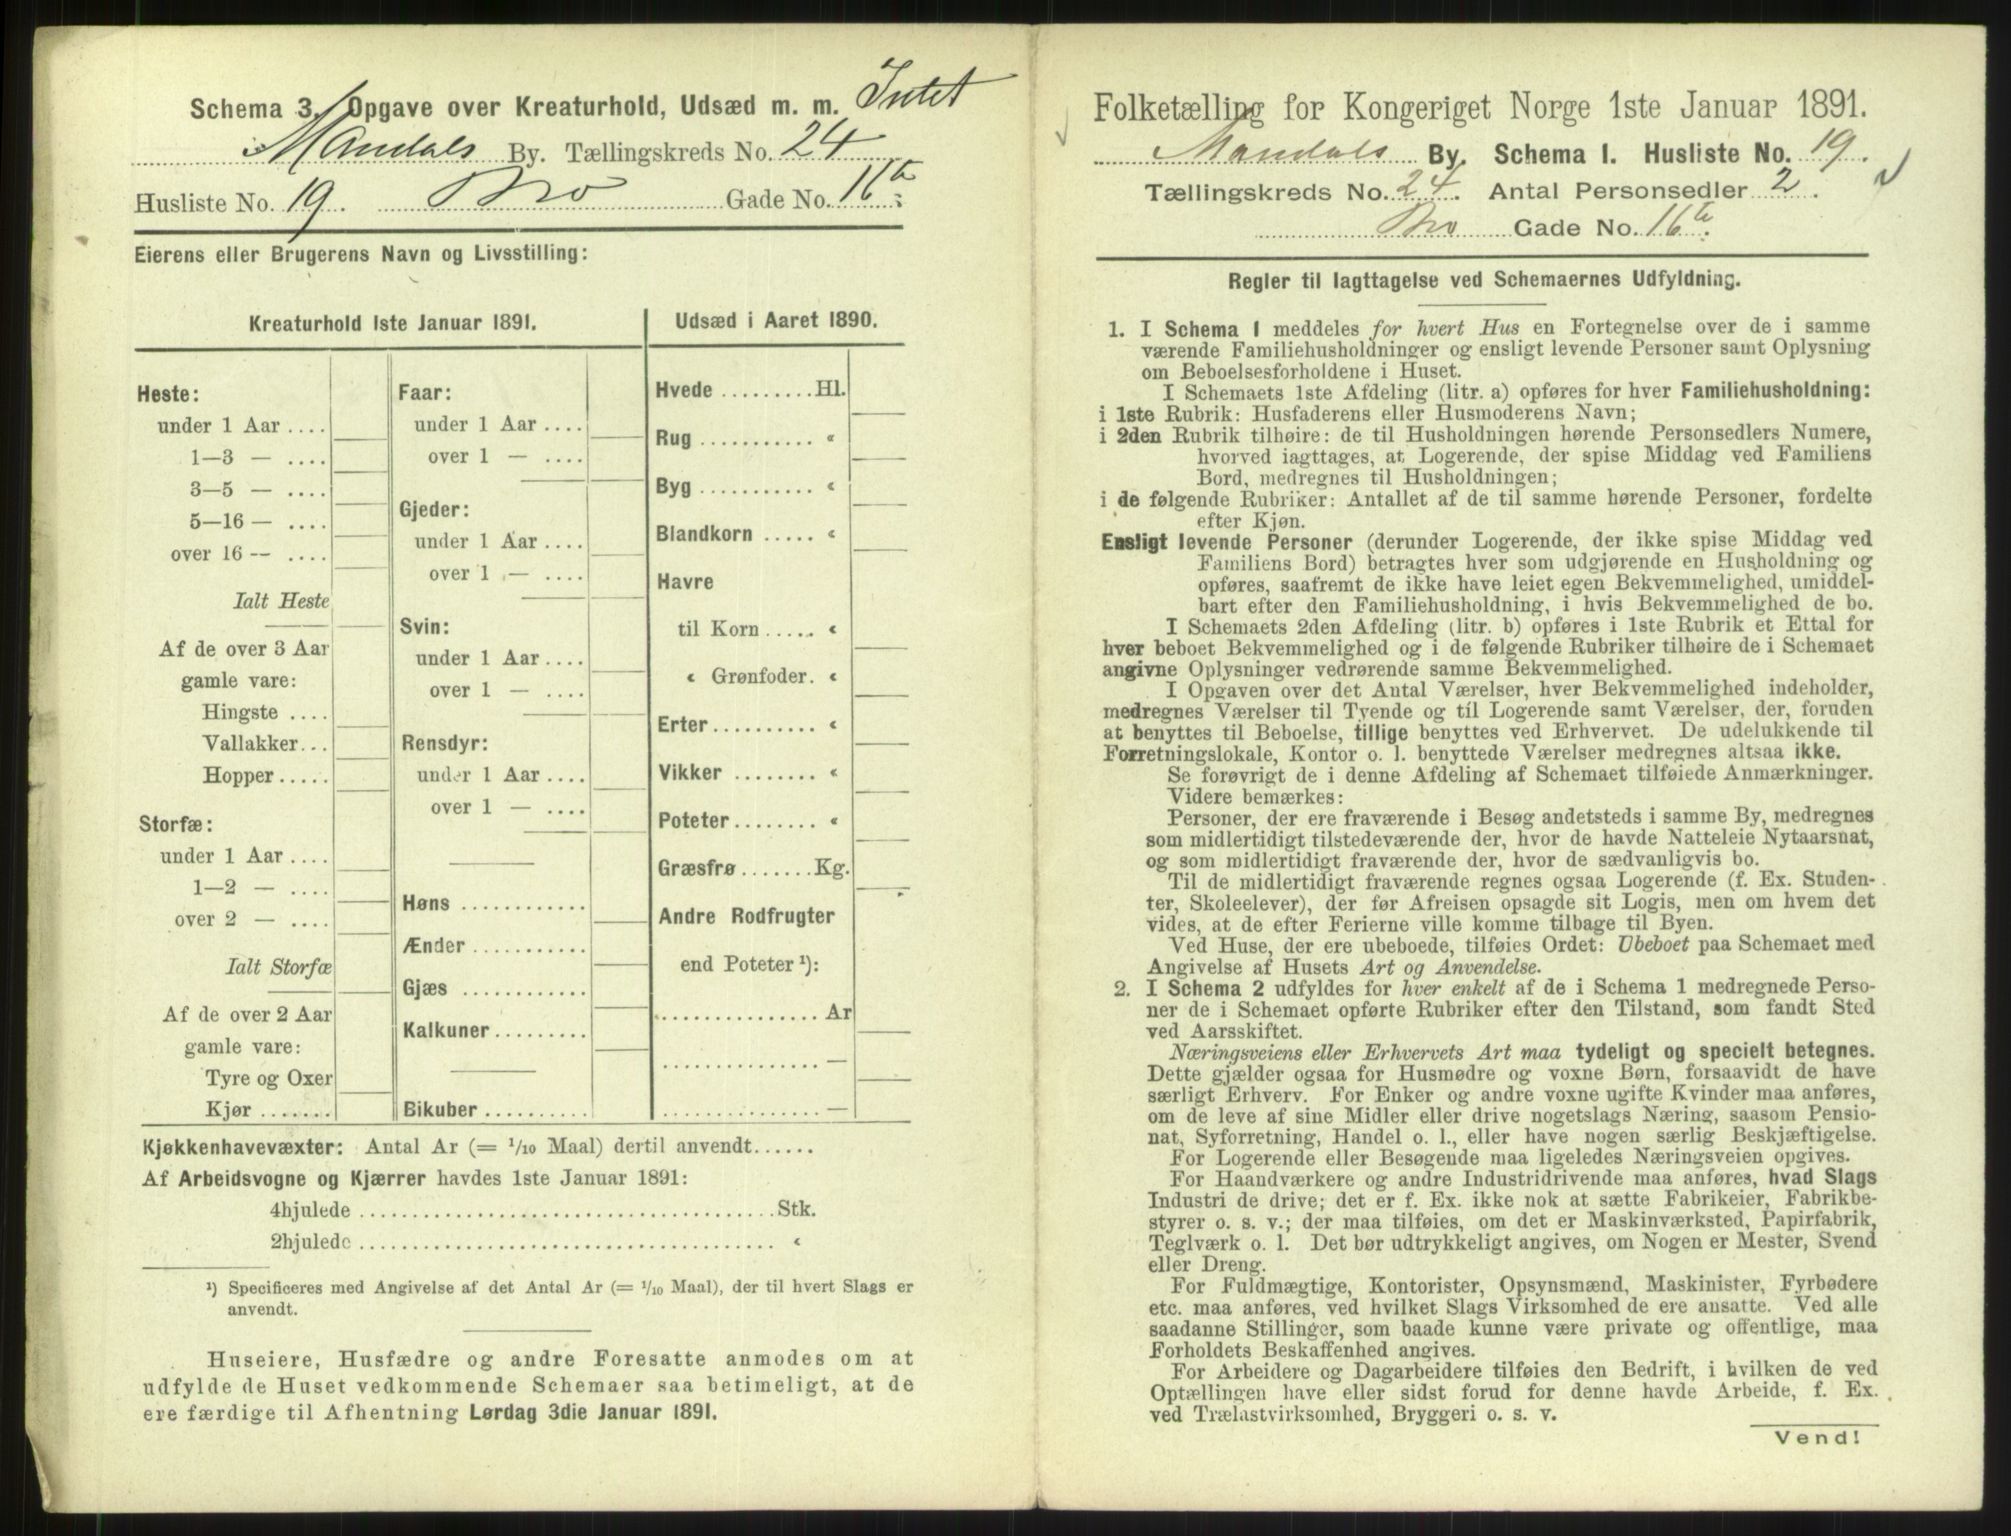 Schema 3. Opgave over Kreaturhold, Udsæd m. m. Intet
Mandals By. Tællingskreds No. 24
Husliste No. 19. Bro Gade No. 16b.
Eierens eller Brugerens Navn og Livsstilling:
Kreaturhold 1ste Januar 1891.
Heste:
under 1 Aar ....
1—3 — ....
3—5 — ....
5—16 — ....
over 16 — ....
Ialt Heste
Af de over 3 Aar
gamle vare:
Hingste ....
Vallakker...
Hopper.....
Storfæ:
under 1 Aar ....
1—2 — ....
over 2 — ....
Ialt Storfæ
Af de over 2 Aar
gamle vare:
Tyre og Oxer
Kjør .......
Faar:
under 1 Aar ....
over 1 — ....
Gjeder:
under 1 Aar ....
over 1 — ....
Svin:
under 1 Aar ....
over 1 — ....
Rensdyr:
under 1 Aar ....
over 1 — ....
Høns ............
Ænder ...........
Gjæs ............
Kalkuner.........
Bikuber ..........
Udsæd i Aaret 1890.
Hvede .........Hl.
Rug ........... «
Byg ........... «
Blandkorn ..... «
Havre
til Korn ..... «
« Grønfoder. «
Erter.......... «
Vikker ........ «
Poteter........ «
Græsfrø.......Kg.
Andre Rodfrugter
end Poteter ¹):
............... Ar
............... —
............... —
Kjøkkenhavevæxter: Antal Ar (= 1/10 Maal) dertil anvendt......
Af Arbeidsvogne og Kjærrer havdes 1ste Januar 1891:
4hjulede .......................................Stk.
2hjulede ....................................... «
¹) Specificeres med Angivelse af det Antal Ar (= 1/10 Maal), der til hvert Slags er
anvendt.
Huseiere, Husfædre og andre Foresatte anmodes om at
udfylde de Huset vedkommende Schemaer saa betimeligt, at de
ere færdige til Afhentning Lørdag 3die Januar 1891.
Folketælling for Kongeriget Norge 1ste Januar 1891.
Mandals By. Schema 1. Husliste No. 19.
Tællingskreds No. 24. Antal Personsedler 2.
Bro Gade No. 16b.
Regler til Iagttagelse ved Schemaernes Udfyldning.
1. I Schema 1 meddeles for hvert Hus en Fortegnelse over de i samme
værende Familiehusholdninger og ensligt levende Personer samt Oplysning
om Beboelsesforholdene i Huset.
I Schemaets 1ste Afdeling (litr. a) opføres for hver Familiehusholdning:
i 1ste Rubrik: Husfaderens eller Husmoderens Navn;
i 2den Rubrik tilhøire: de til Husholdningen hørende Personsedlers Numere,
hvorved iagttages, at Logerende, der spise Middag ved Familiens
Bord, medregnes til Husholdningen;
i de følgende Rubriker: Antallet af de til samme hørende Personer, fordelte
efter Kjøn.
Ensligt levende Personer (derunder Logerende, der ikke spise Middag ved
Familiens Bord) betragtes hver som udgjørende en Husholdning og
opføres, saafremt de ikke have leiet egen Bekvemmelighed, umiddel-
bart efter den Familiehusholdning, i hvis Bekvemmelighed de bo.
I Schemaets 2den Afdeling (litr. b) opføres i 1ste Rubrik et Ettal for
hver beboet Bekvemmelighed og i de følgende Rubriker tilhøire de i Schemaet
angivne Oplysninger vedrørende samme Bekvemmelighed.
I Opgaven over det Antal Værelser, hver Bekvemmelighed indeholder,
medregnes Værelser til Tyende og til Logerende samt Værelser, der, foruden
at benyttes til Beboelse, tillige benyttes ved Erhvervet. De udelukkende til
Forretningslokale, Kontor o. l. benyttede Værelser medregnes altsaa ikke.
Se forøvrigt de i denne Afdeling af Schemaet tilføiede Anmærkninger.
Videre bemærkes:
Personer, der ere fraværende i Besøg andetsteds i samme By, medregnes
som midlertidigt tilstedeværende der, hvor de havde Natteleie Nytaarsnat,
og som midlertidigt fraværende der, hvor de sædvanligvis bo.
Til de midlertidigt fraværende regnes ogsaa Logerende (f. Ex. Studen-
ter, Skoleelever), der før Afreisen opsagde sit Logis, men om hvem det
vides, at de efter Ferierne ville komme tilbage til Byen.
Ved Huse, der ere ubeboede, tilføies Ordet: Ubeboet paa Schemaet med
Angivelse af Husets Art og Anvendelse.
2. I Schema 2 udfyldes for hver enkelt af de i Schema 1 medregnede Perso-
ner de i Schemaet opførte Rubriker efter den Tilstand, som fandt Sted
ved Aarsskiftet.
Næringsveiens eller Erhvervets Art maa tydeligt og specielt betegnes.
Dette gjælder ogsaa for Husmødre og voxne Børn, forsaavidt de have
særligt Erhverv. For Enker og andre voxne ugifte Kvinder maa anføres,
om de leve af sine Midler eller drive nogetslags Næring, saasom Pensio-
nat, Syforretning, Handel o. l., eller have nogen særlig Beskjæftigelse.
For Logerende eller Besøgende maa ligeledes Næringsveien opgives.
For Haandværkere og andre Industridrivende maa anføres, hvad Slags
Industri de drive; det er f. Ex. ikke nok at sætte Fabrikeier, Fabrikbe-
styrer o. s. v.; der maa tilføies, om det er Maskinværksted, Papirfabrik,
Teglværk o. l. Det bør udtrykkeligt angives, om Nogen er Mester, Svend
eller Dreng.
For Fuldmægtige, Kontorister, Opsynsmænd, Maskinister, Fyrbødere
etc. maa anføres, ved hvilket Slags Virksomhed de ere ansatte. Ved alle
saadanne Stillinger, som baade kunne være private og offentlige, maa
Forholdets Beskaffenhed angives.
For Arbeidere og Dagarbeidere tilføies den Bedrift, i hvilken de ved
Optællingen have eller sidst forud for denne havde Arbeide, f. Ex.
ved Trælastvirksomhed, Bryggeri o. s. v.
Vend!